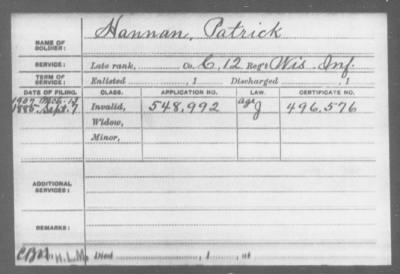 NAME OF SOLDIER: Hannan, Patrick
SERVICE: Late rank, Co. C, 12 Reg't Wis. Inf.
TERM OF SERVICE: Enlisted , 1 Discharged , 1
DATE OF FILING. CLASS. APPLICATION NO. LAW. CERTIFICATE NO.
1907 Mch.
1885 Sept. 7 Invalid, 548,992 age J 496,576
Widow,
Minor,
ADDITIONAL SERVICES:
REMARKS:
H.L.M. Died , 1 , at